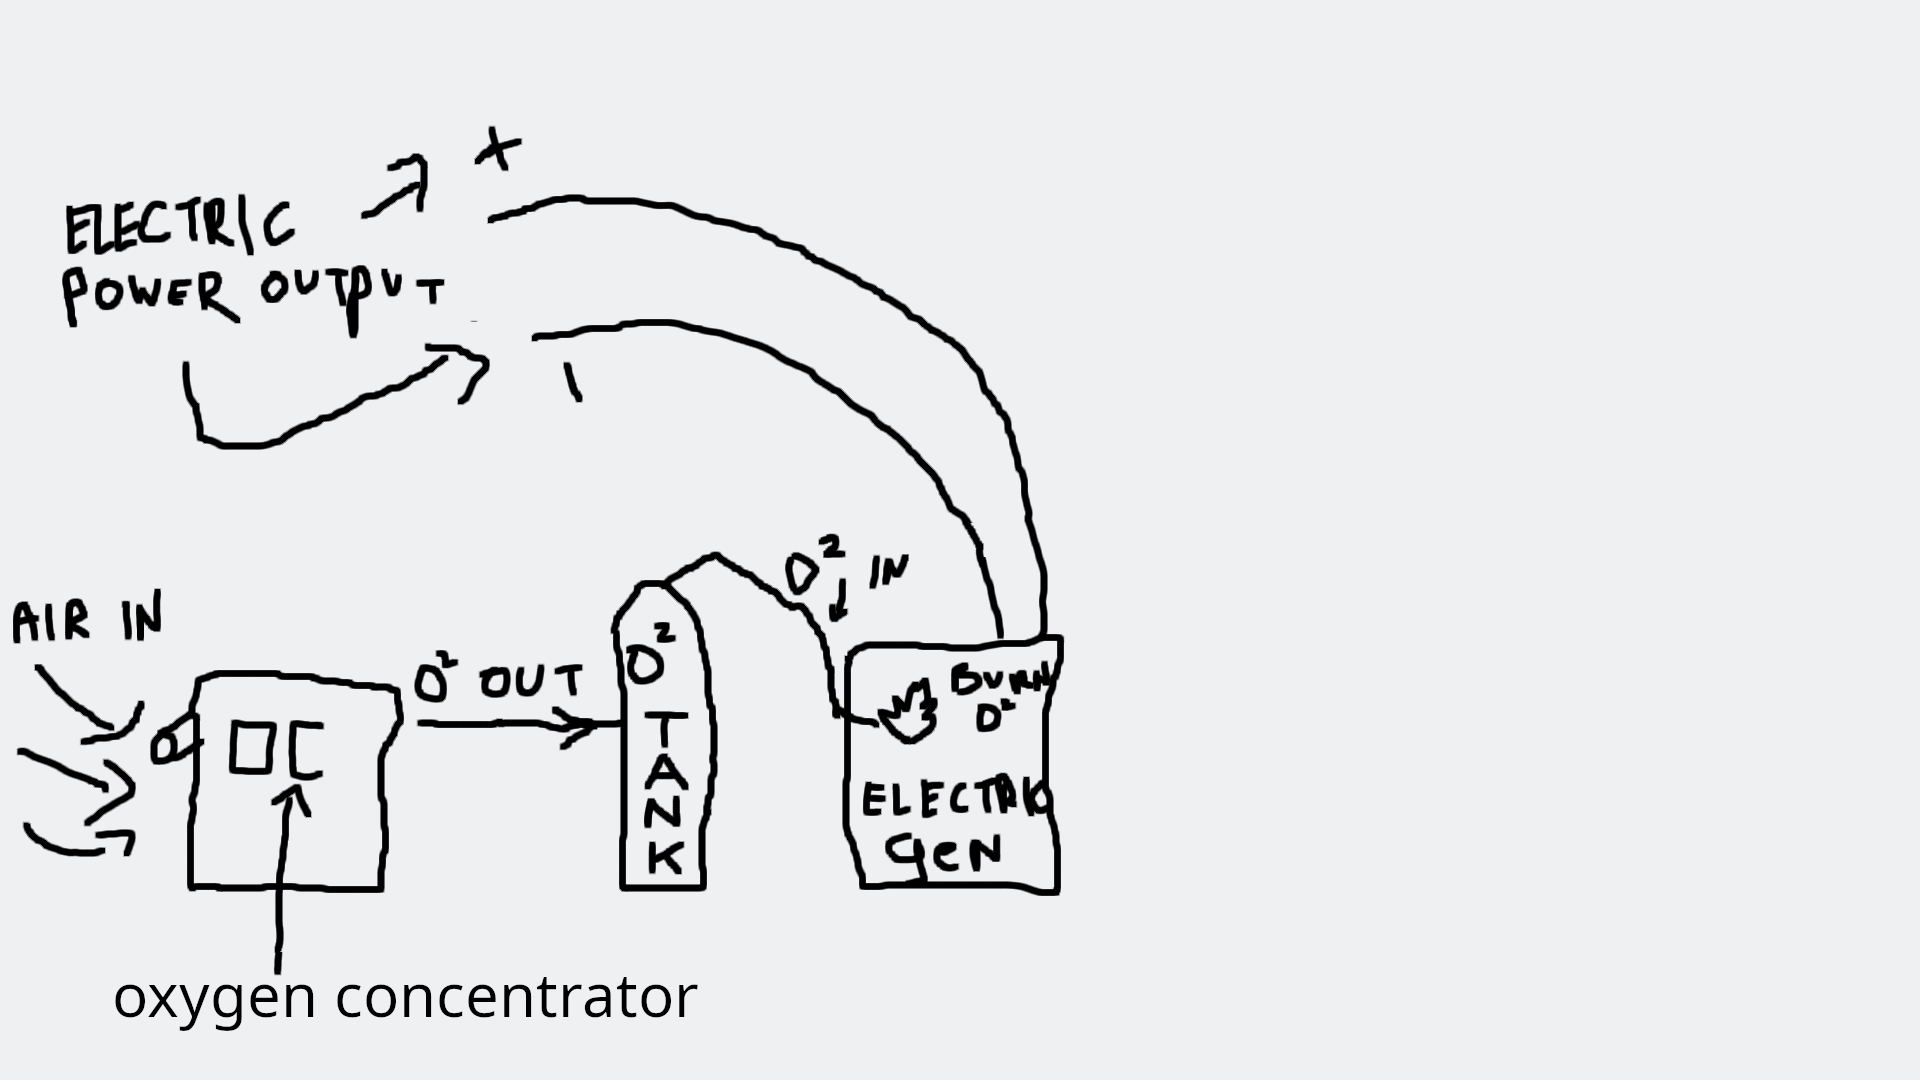 +
ELECTRIC
POWER OUTPUT
O² IN
AIR IN
O² OUT
O²
TANK
OC
BURN
O²
ELECTRIC
GEN
oxygen concentrator